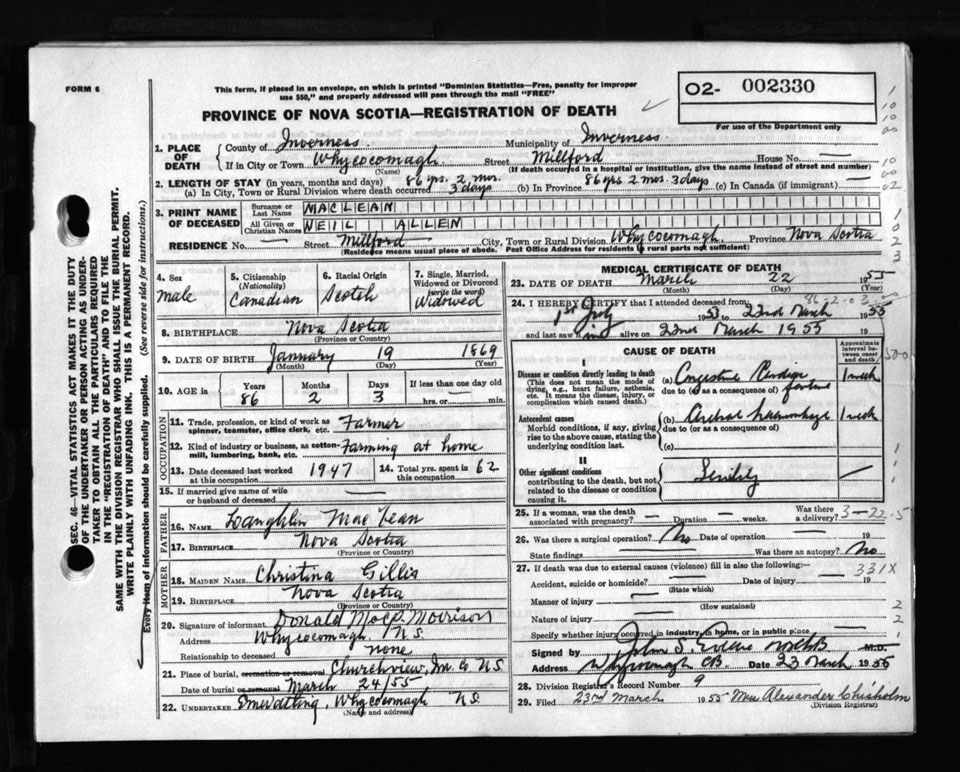 FORM 6
This form, if placed in an envelope, on which is printed "Dominion Statistics—Free, penalty for improper
use $50," and properly addressed will pass through the mail "FREE"
PROVINCE OF NOVA SCOTIA—REGISTRATION OF DEATH
02- 002330
For use of the Department only
1. PLACE OF DEATH
County of Inverness Municipality of Inverness
If in City or Town Whycocomagh Street Millford House No. —
(Name) (If death occurred in a hospital or institution, give the name instead of street and number)
2. LENGTH OF STAY (in years, months and days) 86 yrs. 2 mos.
(a) In City, Town or Rural Division where death occurred 3 days (b) In Province 86 yrs 2 mos. 3 days (c) In Canada (if immigrant) —
3. PRINT NAME OF DECEASED
Surname or Last Name MACLEAN
All Given or Christian Names NEIL ALLEN
RESIDENCE No. — Street Millford City, Town or Rural Division Whycocomagh Province Nova Scotia
(Residence means usual place of abode. Post Office Address for residents in rural parts not sufficient)
4. Sex male
5. Citizenship (Nationality) Canadian
6. Racial Origin Scotch
7. Single, Married, Widowed or Divorced (write the word) Widowed
8. BIRTHPLACE Nova Scotia
(Province or Country)
9. DATE OF BIRTH January 19 1869
(Month) (Day) (Year)
10. AGE in Years 86 Months 2 Days 3 If less than one day old — hrs. or min.
OCCUPATION
11. Trade, profession, or kind of work as spinner, teamster, office clerk, etc. Farmer
12. Kind of industry or business, as cotton-mill, lumbering, bank, etc. Farming at home
13. Date deceased last worked at this occupation 1947 14. Total yrs. spent in this occupation 62
15. If married give name of wife or husband of deceased —
FATHER
16. NAME Laughlin MacLean
17. BIRTHPLACE Nova Scotia
(Province or Country)
MOTHER
18. MAIDEN NAME Christina Gillis
19. BIRTHPLACE Nova Scotia
(Province or Country)
20. Signature of informant Donald MacP. Morrison
Address Whycocomagh N.S.
Relationship to deceased none
21. Place of burial, cremation or removal Churchview, In. Co N.S.
Date of burial or removal March 24/55
22. UNDERTAKER Whycocomagh N.S.
(Name and address)
MEDICAL CERTIFICATE OF DEATH
23. DATE OF DEATH March 22 1955
(Month) (Day) (Year)
86-2-03
24. I HEREBY CERTIFY that I attended deceased from:
1st July 1953 to 22nd March 1955
and last saw him alive on 22nd March 1955
CAUSE OF DEATH
Approximate interval between onset and death
I
Disease or condition directly leading to death
(This does not mean the mode of dying, e.g., heart failure, asthenia, etc. It means the disease, injury, or complication which caused death.)
(a) Congestive Cardiac failure 1 week
due to (or as a consequence of)
Antecedent causes
Morbid conditions, if any, giving rise to the above cause, stating the underlying condition last.
(b) Cerebral haemorrhage 1 week
due to (or as a consequence of)
(c)
II
Other significant conditions
contributing to the death, but not related to the disease or condition causing it.
Senility —
25. If a woman, was the death associated with pregnancy? — Duration — weeks. Was there a delivery?
3-22-5
26. Was there a surgical operation? No Date of operation 19
State findings Was there an autopsy? No
27. If death was due to external causes (violence) fill in also the following:— 331X
Accident, suicide or homicide? — Date of injury — 19
(State which)
Manner of injury —
(How sustained)
Nature of injury —
Specify whether injury occurred in industry, in home, or in public place —
Signed by John S. M.D.
Address Whycocomagh C.B. Date 23 March 1955
28. Division Registrar's Record Number 9
29. Filed 23rd March 1955 Mrs Alexander Chisholm
(Division Registrar)
SEC. 46—VITAL STATISTICS ACT MAKES IT THE DUTY
OF THE UNDERTAKER OR PERSON ACTING AS UNDER-
TAKER TO OBTAIN ALL THE PARTICULARS REQUIRED
IN THE "REGISTRATION OF DEATH" AND TO FILE THE
SAME WITH THE DIVISION REGISTRAR WHO SHALL ISSUE THE BURIAL PERMIT.
WRITE PLAINLY WITH UNFADING INK. THIS IS A PERMANENT RECORD.
Every item of information should be carefully supplied. (See reverse side for instructions.)